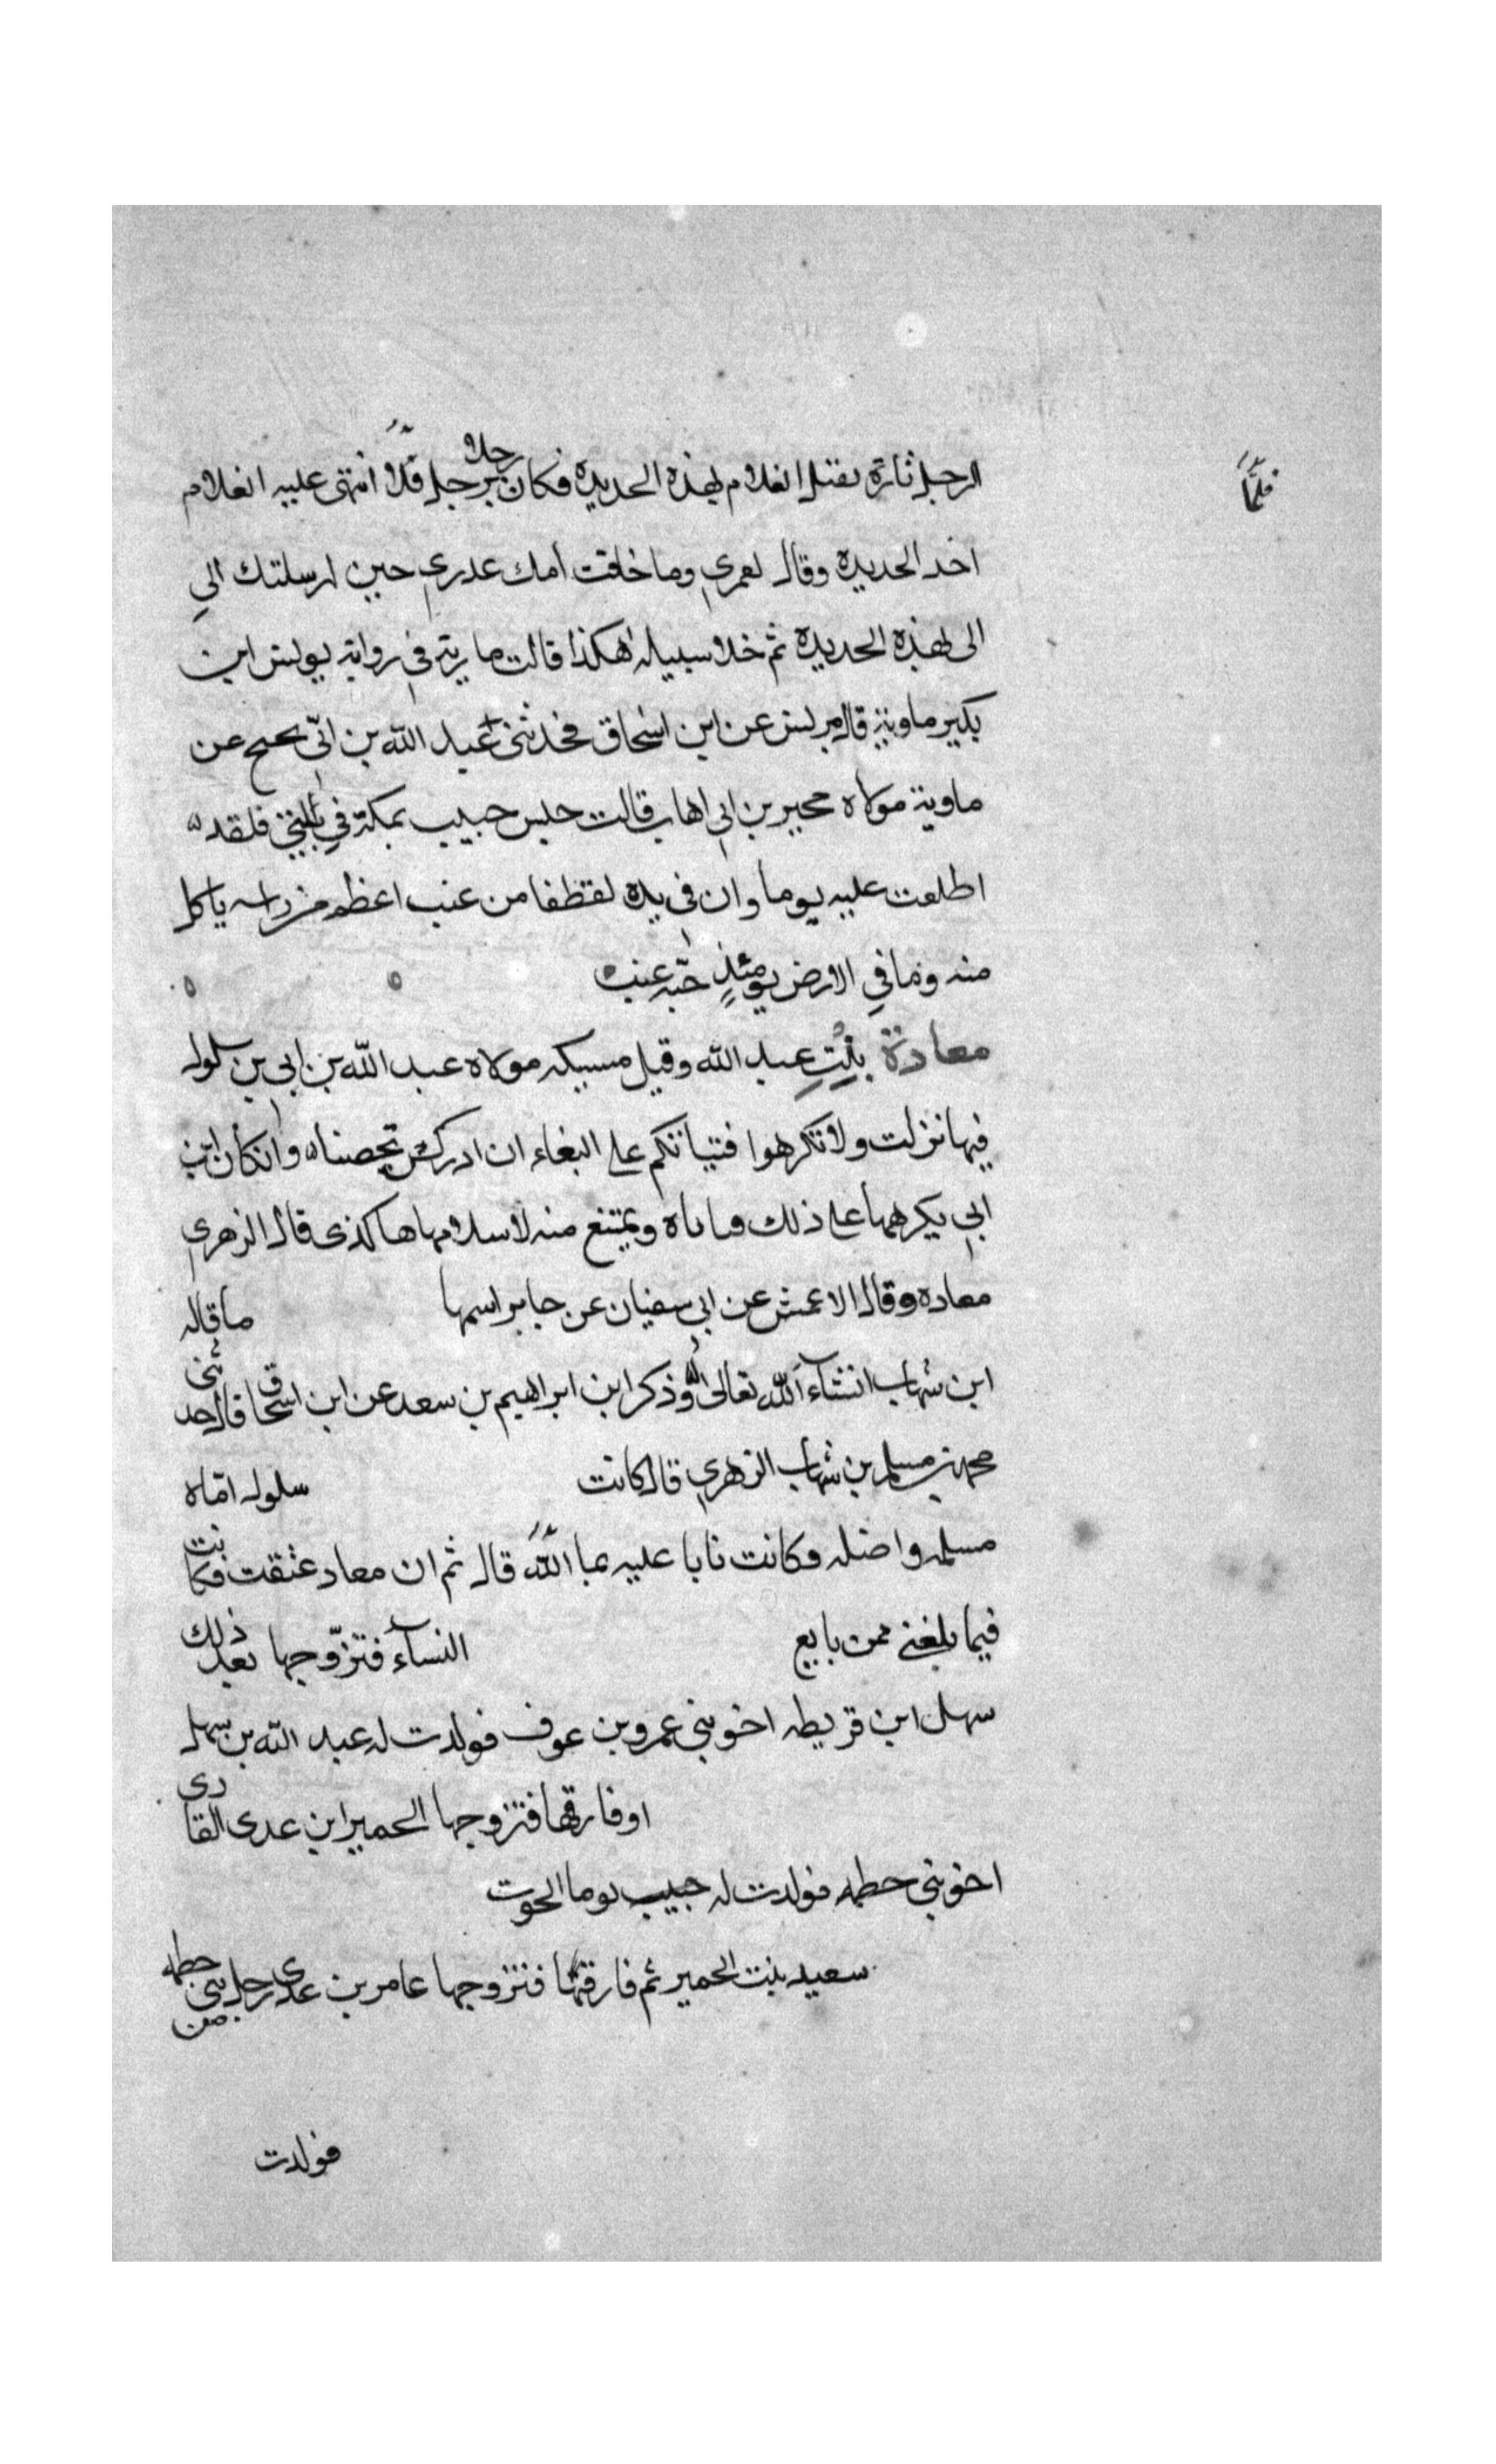 الرجل ثارة بقتل الغلام بهذه الحديدة فكان رجلا برجل فلا انتهى عليه الغلام
فلمّا
اخد الحديدة وقال لعمري وما خافت أمك غدري حين ارسلتك الي
الى بهذه الحديدة ثم خلا سبيله هكذا قالت مارية في رواية يونس ابن
بكير ماوية قال يونس عن ابن اسحاق فحدثنى عبد الله بن ابى نحيح عن
ماوية مولاة حجير بن ابي اهاب قالت حبس حبيب بمكة في بيتي فلقد
اطلعت عليه يوما وان في يده لقطفا من عنب اعظم من راسه ياكل
منه وما في الارض يومئذٍ حبّه عنب
معادة بنت عبد الله وقيل مسيكه مولاه عبد الله بن ابي بن سلول
فيها نزلت ولا تكرهوا فتياتكم على البغاء ان اردن تحصنا وان كان ابن
ابي يكرهها على ذلك وتاباه ويمتنع منه لاسلامها هاكذى قال الزهري
معاده وقال الاعمش عن ابي سفيان عن جابر اسمها ما قاله
ابن شهاب انشاء الله تعالى وذكر ابن ابراهيم بن سعد عن ابن اسحاق قال حدثنى
محمد بن مسلم بن شهاب الزهري قال كانت سلول امّاه
مسلمه واضله وكانت تابا عليه بما الله قال ثم ان معاد عتقت فكانت
فيما بلغنى ممن بايع النسآء فتزوّجها بعد ذلك
سهل ابن قريطه اخو بنى عمرو بن عوف فولدت له عبد الله بن سهل
او فارقها فتزوجها الحمير ابن عدى القادى
اخو بني حطمه فولدت له حبيب توما الحوت
سعيد بنت الحمير ثم فارقها فتزوجها عامر بن عدى رجل من بنى حطمه
فولدت